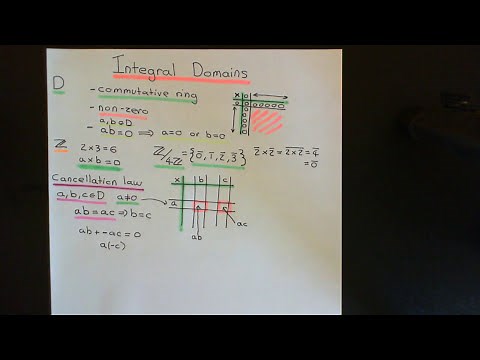 Integral Domains
D
- commutative ring
- non-zero
- a,b∈D
ab=0 ⟹ a=0 or b=0
x 0
0 0 0 0 0 0
0
0
0
0
0
ℤ 2×3=6
a×b=0
ℤ/4ℤ = {0̅, 1̅, 2̅, 3̅}
2̅×2̅ = 2×2̅ = 4̅
= 0̅
Cancellation law
a,b,c∈D a≠0
ab=ac ⟹ b=c
ab+-ac=0
a(-c)
x b c
a
ab
ac